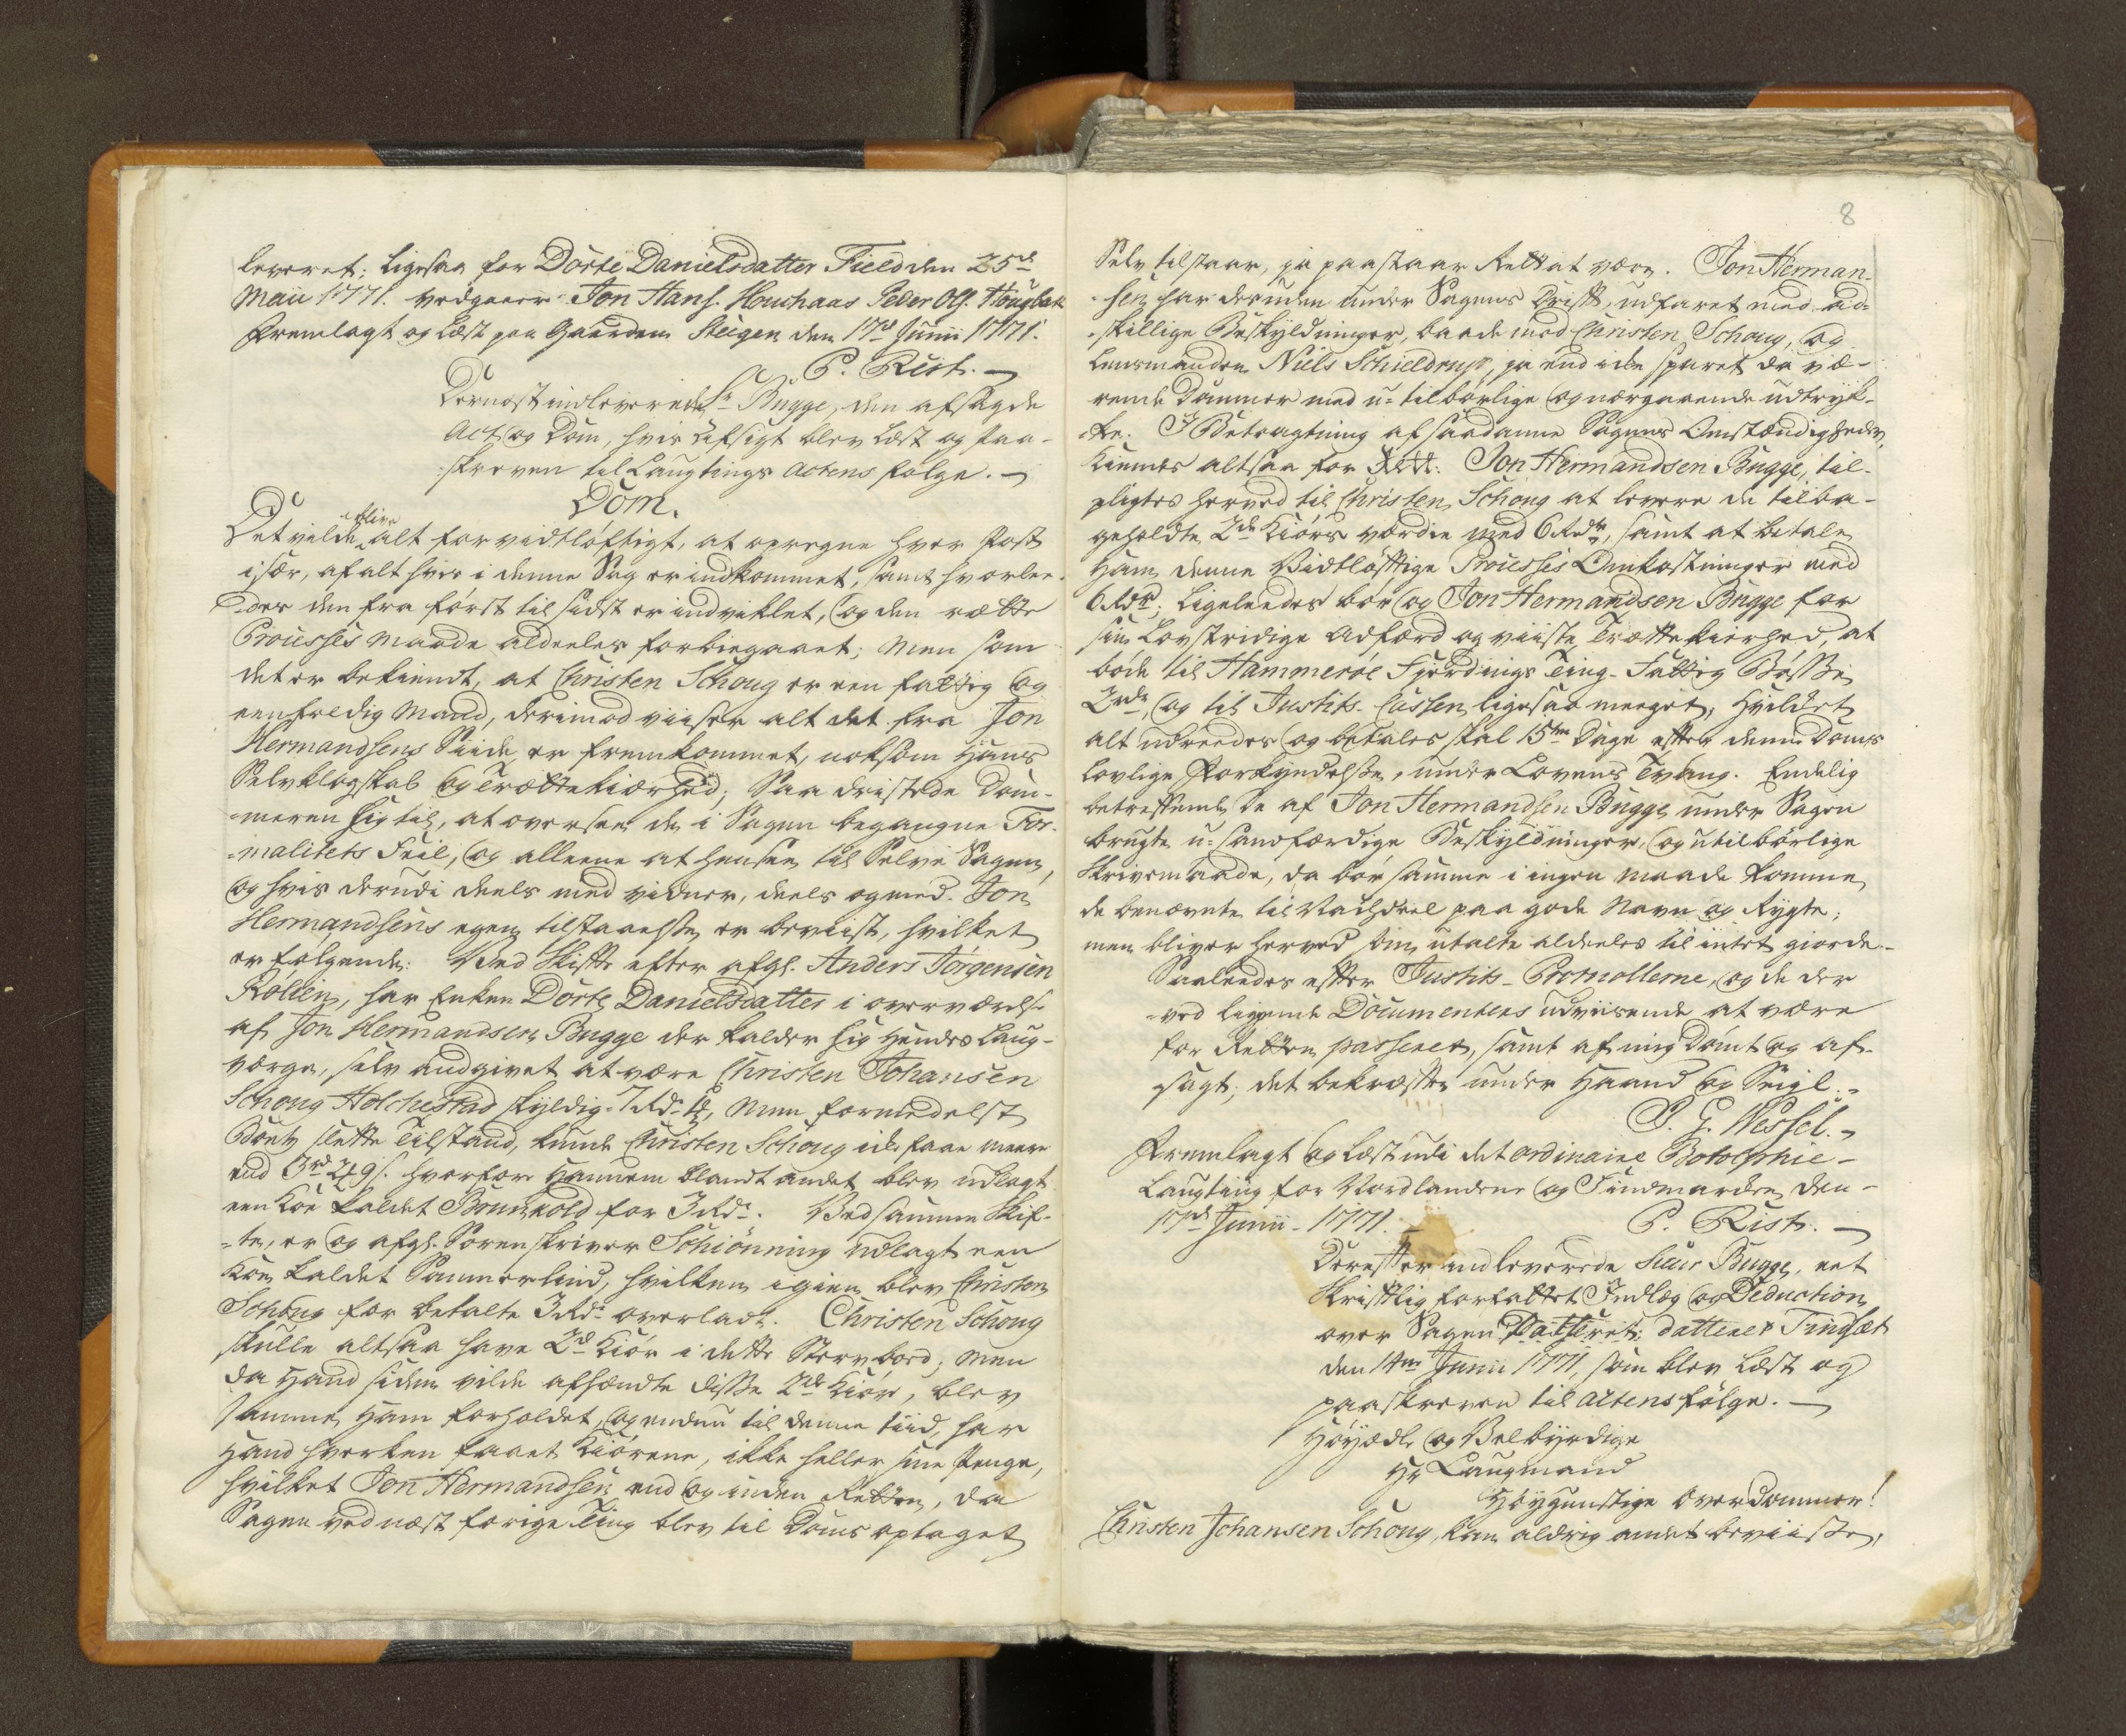 leveret; ligesaa for Dorte Danielsdatter Field den 25d
Maii 1771. vedgaaer Jon Hans. Houchaas Peder Ols. Hougbak
Fremlagt og Læst paa Gaarden Steigen den 17d Junii 1771.
P. Rist.
Dernest indleverede Sr Bugge, den afsagde
Act og Dom, hvis Afsigt blev læst og paa-
skreven til Laugtings Actens følge.
Dom.
Det vilde blive alt for vidtløftigt, at opregne hver Post
især, af alt hvis i denne Sag er indkommet, samt hvorlee-
des den fra først til sidst er indviklet, og den rætte
Processes Maade aldeeles forbiegaaet; Men som
det er bekiendt, at Christen Schoug er een fattig og
eenfoldig Mand, derimod viiser alt det fra Jon
Hermandsens Siide er fremkommet, noksom Hans
Selvklogskab og Trættekiærhed; Saa dristede Dom-
meren sig til, at oversee de i Sagen begangne For-
malitets Feil, og alleene at hensee til Selve Sagen,
og hvis derudi deels med vidner, deels og med Jon
Hermandsens egen tilstaaelse er beviist, hvilket
er følgende: Ved Skifte efter afgl. Anders Jørgensen
Kølien, har Enken Dorte Danielsdatter i overværelse
af Jon Hermandsen Bugge der kalder sig Hendes Laug-
værge, selv andgivet at være Christen Johansen
Schoug Holchestad skyldig 7 Rdr, Men formedelst
Boets slette Tilstand, kunde Christen Schoug icke faae meere
end 3rd 9 s. hvorfor Hannem blandt andet blev udlagt
een Koe kaldet Brunkold for 3 Rdr. Ved samme Skif-
te, er og afgl. Sorenskriver Schiønning udlagt een
Koe kaldet Sommerlind, hvilken igien blev Christen
Schoug for betalte 3 Rdr overladt. Christen Schoug
skulle altsaa have 2de Kiør i dette Stervboed; Men
da Hand siden vilde afhændte disse 2de Kiør, blev
samme Ham forholdet, og endnu til denne tiid, har
Hand hverken faaet Kiørene, ikke heller sine Penge,
hvilket Jon Hermandsen end og inden Retten, da
Sagen ved næst forige Ting blev til Doms optaget
8
Selv tilstaar, ja paastaar Rett at være. Jon Herman-
sen har desuden under Sagens Drift, udfaret med ad-
skillige Beskyldninger, baade mod Christen Schoug, og
Lensmanden Niels Schieldrup, ja end icke sparet da væ-
rende Dommer med u-tilbørlige og nærgaaende udtryk-
ke. I Betragtning af saadanne Sagens Omstændigheder,
kiennes altsaa for Rett: Jon Hermandsen Bugge, til-
pligtes herved til Christen Schoug at levere de tilba-
geholdte 2de Kiørs værdie med 6 Rdr, samt at betale
Ham denne Vidtløftige Processes Omkostninger med
6 Rdr; Ligeleedes bør og Jon Hermandsen Bugge for
sin Lovstridige Adfærd og viiste Trættekierhed, at
bøde til Hammerøe Fjerdings Ting-Fattig Bøsse
2rdr, og til Justits-Cassen ligesaa meeget; Hvilket
alt udreedes og betales skal 15ten Dage efter denne Doms
lovlige Forkyndelse, under Lovens Tvang. Endelig
betreffende de af Jon Hermandsen Bugge under Sagen
brugte u-sandfærdige Beskyldninger, og utilbørlige
Skrivemaade, da bør samme i ingen Maade komme
de benævnte til Nachdeel paa gode Navn og Rygte;
men bliver herved som utalte aldeeles til intet giorde.
Saaleedes efter Justits-Protocollerne, og de der
ved liggende Documenters udviisende at være
for Retten passeret, samt af mig dømt og af-
sagt; det bekræfter under Haand og Seigl.
P. G. Wessel.
Fremlagt og Læst udi det ordinaire Bótolphie-
Laugting for Nordlandene og Findmarken den
17d Junii 1771.
P. Rist.
Derefter indleverede Sieur Bugge, eet
Skriftlig forfattet Indlæg og Deduction
over Sagen Datteret: datteret Tingsæt
den 14ten Junii 1771, som blev læst og
paaskreven til Actens følge.
Høyædle og Velbyrdige
Hr Laugmand
Høygunstige OverDommer!
Christen Johansen Schoug, kan aldrig andet beviisse,